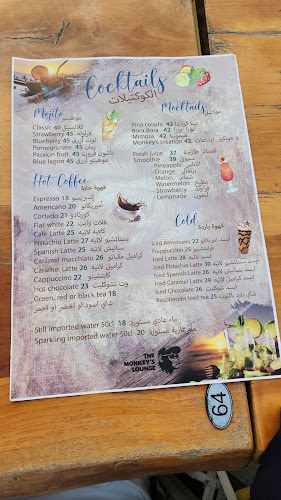 Cocktails
الكوكتيلات
Mojito موهيتو
Classic 40 كلاسيك
Strawberry 45 فراولة
Blueberry 45 توت أزرق
Pomegranate 45 رمان
Passion fruit 45 باشون فروت
Blue lagon 45 موهيتو أزرق
Mocktails موكتيل
Pina colada 42 بينا كولادا
Bora Bora 42 بورا بورا
Mimosa 42 ميموسا
Monkey's creation 42
Fresh juice 37 عصائر طازجة
Smoothie 39 سموذي
- Pineapple أناناس
- Orange برتقال
- Melon شمام
- Watermelon بطيخ
- Strawberry فراولة
- Lemonade ليمون
Hot Coffee قهوة حارة
Espresso 18 إسبريسو
Americano 20 أمريكانو
Cortado 21 كورتادو
Flat white 22 فلات وايت
Café Latte 25 كافيه لاتيه
Pistachio Latte 27 بيستاشيو لاتيه
Spanish Latte 25 سبانيش لاتيه
Caramel macchiato 26 كراميل مكياتو
Caramel Latte 26 كراميل لاتيه
Cappuccino 22 كابتشينو
Hot chocolate 23 هوت شوكليت
Green, red or black tea 18
شاي اسود او اخضر او احمر
Cold قهوة باردة
Iced Americano 22 ايسد أمريكانو
Frappuccino 25
Iced Latte 28 ايسد لاتيه
Iced Pistachio Latte 30
Iced Spanish Latte 28
Iced Caramel Latte 29
Iced Chocolate 26
Raspberries Iced tea 25 شاي بارد بالتوت
Still imported water 50cl 18 ماء عادي مستورد
Sparkling imported water 50cl 20 ماء غازية مستورد
THE
MONKEY'S
LOUNGE
64